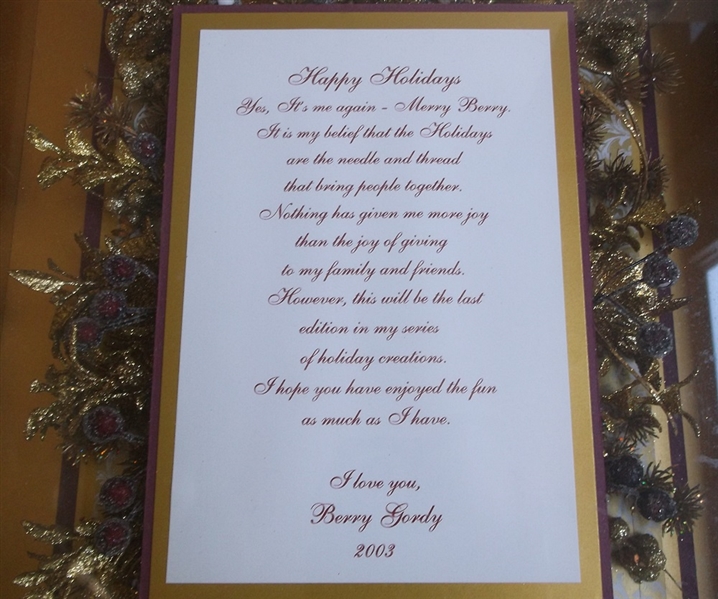 Happy Holidays
Yes, It's me again - Merry Berry.
It is my belief that the Holidays
are the needle and thread
that bring people together.
Nothing has given me more joy
than the joy of giving
to my family and friends.
However, this will be the last
edition in my series
of holiday creations.
I hope you have enjoyed the fun
as much as I have.
I love you,
Berry Gordy
2003